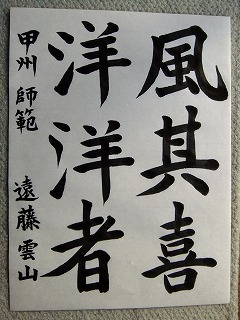 風其喜
洋洋者
甲州 師範 遠藤雲山